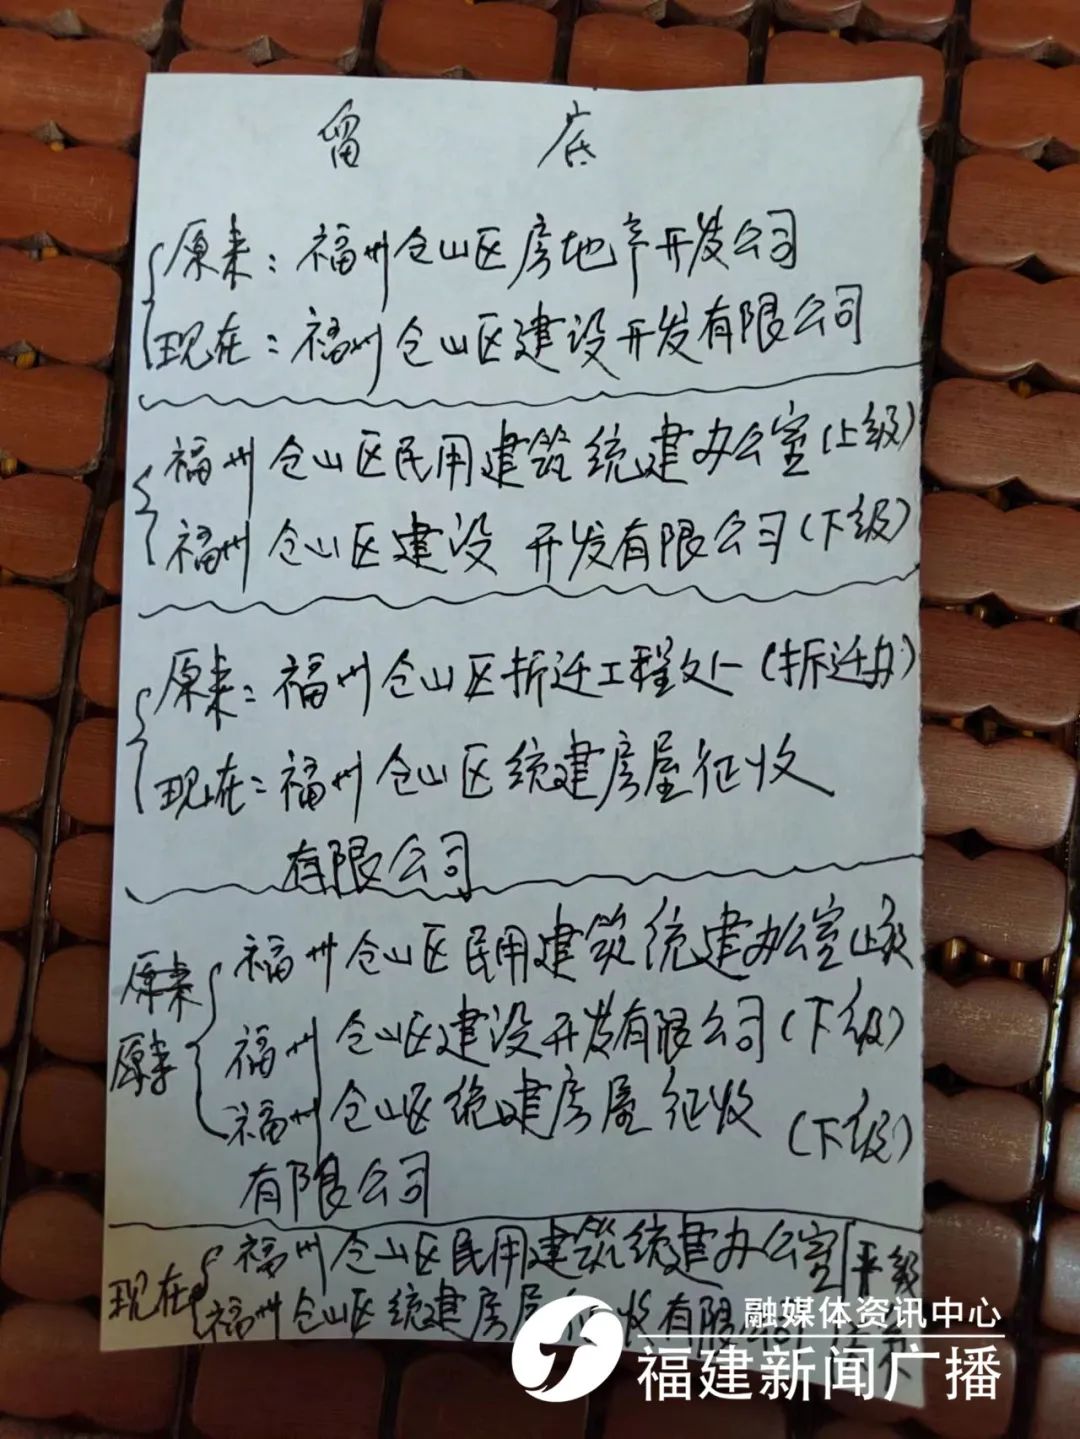 留 底
原来：福州仓山区房地产开发公司
现在：福州仓山区建设开发有限公司
福州仓山区民用建筑统建办公室(上级)
福州仓山区建设开发有限公司(下级)
原来：福州仓山区拆迁工程处(拆迁办)
现在：福州仓山区统建房屋征收
有限公司
原来 福州仓山区民用建筑统建办公室上级
原来 福州仓山区建设开发有限公司(下级)
福州仓山区统建房屋征收(下级)
有限公司
现在 福州仓山区民用建筑统建办公室 平级
福州仓山区统建房屋 收有限
融媒体资讯中心
福建新闻广播